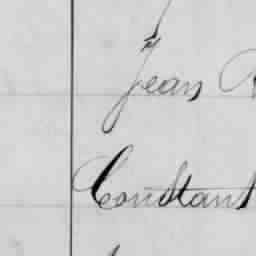 Jean
Constant